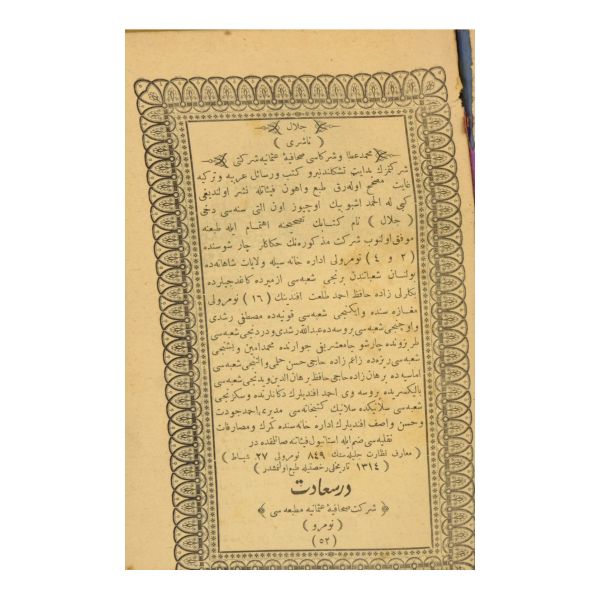 جلال
( ناشری )
محمد عطا و شرکاسی صحافیهٔ عثمانیه شرکتی
شرکتمزك بدایت تشکلندنبرو کتب و رسائل عربیه و ترکیه
غایت مصحح اوله‌رق طبع واهون فیئاتله نشر اولندیغی
کبی له الحمد اشبو بیك اوچیوز اون التی سنه‌سی دخی
( جلال ) نام کتابك تصحیحنه اهتمام ایله طبعنه
موفق اولنوب شرکت مذکوره‌نك حکاکلر چارشوسنده
( ٢ و ٤ ) نومرولی اداره خانه سیله ولایات شاهانه‌ده
بولنان شعباتندن برنجی شعبه‌سی ازمیرده کاغدجیلرده
زاده حافظ احمد طلعت افندینك ( ١٦ ) نومرولی
مغازه سنده وایکنجی شعبه‌سی قونیه‌ده مصطفی رشدی
و اوچنجی شعبه‌سی بروسه‌ده عبدالله رشدی و دردنجی شعبه‌سی
طربزونده چارشو جامعشریفی جوارنده محمد امین و بشنجی
شعبه‌سی ریزه‌ده زاده حاجی حسن حلمی والتنجی شعبه‌سی
اماسیه‌ده برهان زاده حاجی حافظ برهان الدین ویدنجی شعبه‌سی
بالیکسریده بروسه وی احمد افندیلرك دکانلرنده وسکزنجی
شعبه‌سی سلانیکده سلانیك کتبخانه‌سی مدیری احمد جودت
وحسن واصف افندیلرك اداره خانه سنده کمرك و مصارفات
نقلیه‌سی ضم ایله استانبول فیئاتنه صاتلمقده در
( معارف نظارت جلیله‌سنك ٨٤٩ نومرولی ٢٧ شباط )
( ١٣١٤ تاریخلی رخصتیله طبع اولنمشدر )
درسعادت
شرکت صحافیهٔ عثمانیه مطبعه سی
( نومرو )
( ٥٢ )